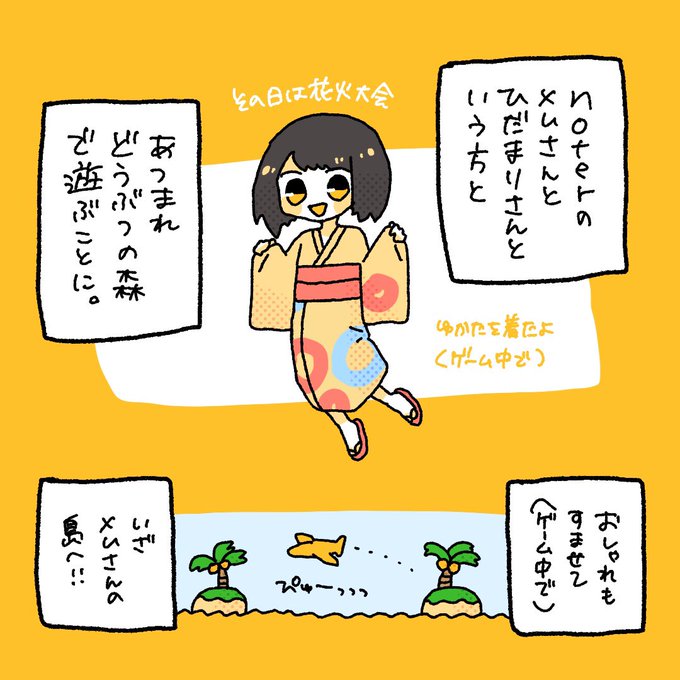 noterの
メムさんと
ひだまりさんと
いう方と
その日は花火大会
あつまれ
どうぶつの森
で遊ぶことに。
ゆかたを着たよ
(ゲーム中で)
おしゃれも
すませて
(ゲーム中で)
ぴゅーっっっ
いざ
メムさんの
島へ!!